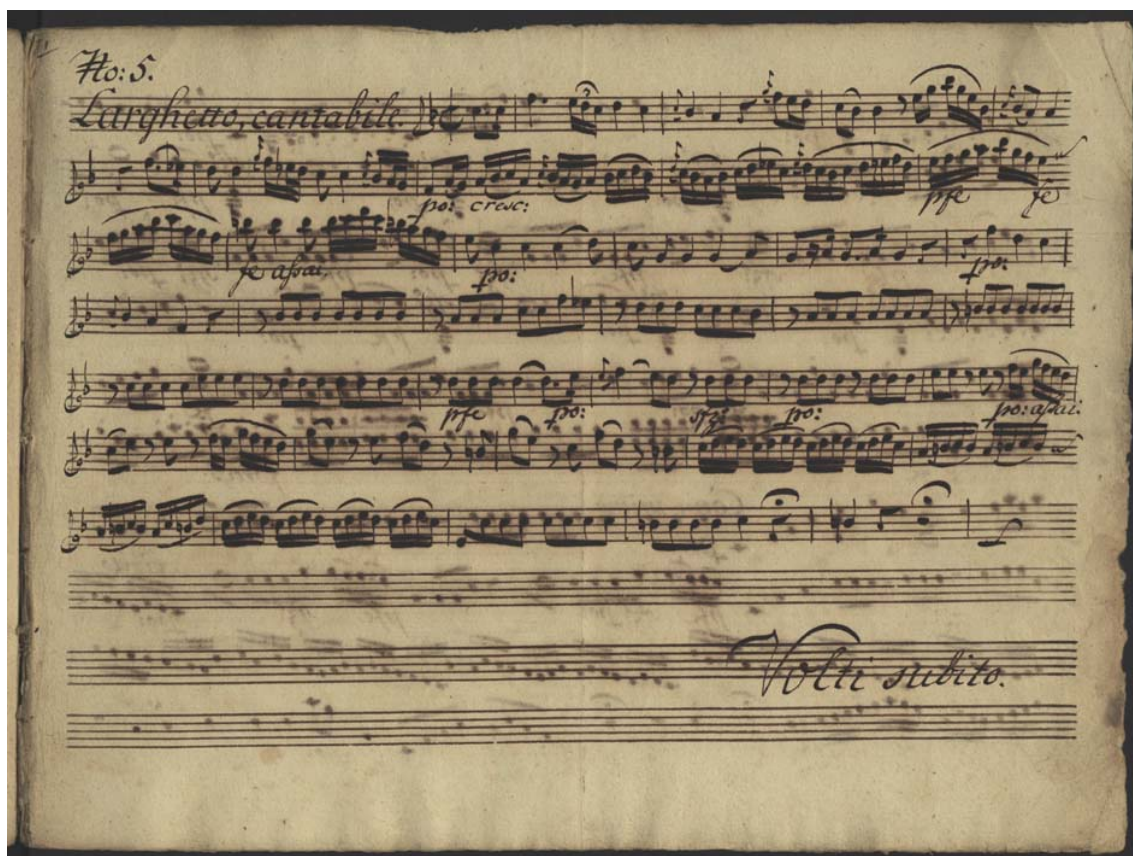 No: 5.
Larghetto, cantabile.
po: cresc: pfe fe
fe assai. po: po:
pfe po: sfz po: po: assai:
Volti subito.